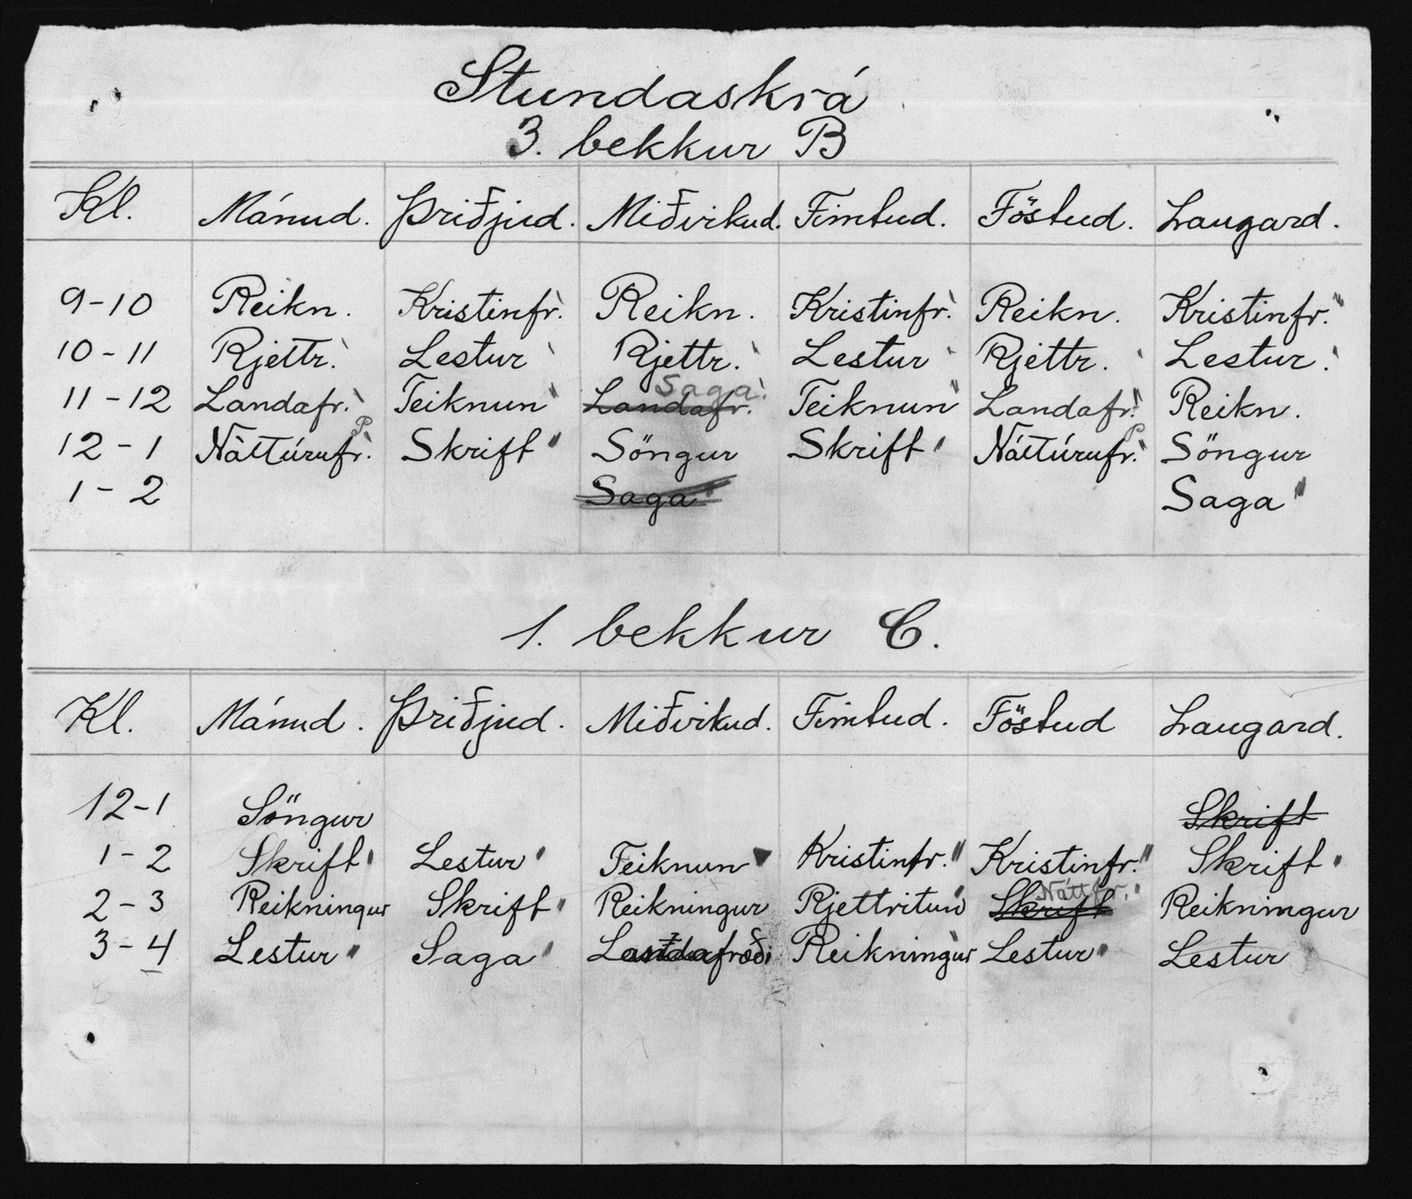 Stundaskrá
3. bekkur B
Kl. Mánud. Þriðjud. Miðvikud. Fimtud. Föstud. Laugard.
9-10 Reikn. Kristinfr. Reikn. Kristinfr. Reikn. Kristinfr.
10-11 Rjettr. Lestur Rjettr. Lestur Rjettr. Lestur.
Saga
11-12 Landafr. Teiknun Landafr. Teiknun Landafr. Reikn.
P P
12-1 Náttúrufr. Skrift Söngur Skrift Náttúrufr. Söngur
1-2 Saga Saga
1. bekkur C.
Kl. Mánud. Þriðjud. Miðvikud. Fimtud. Föstud Laugard.
12-1 Söngur Skrift
1-2 Skrift Lestur Teiknun Kristinfr. Kristinfr. Skrift
Náttfr.
2-3 Reikningur Skrift Reikningur Rjettritun Skrift Reikningur
3-4 Lestur Saga Reikningur Lestur Lestur